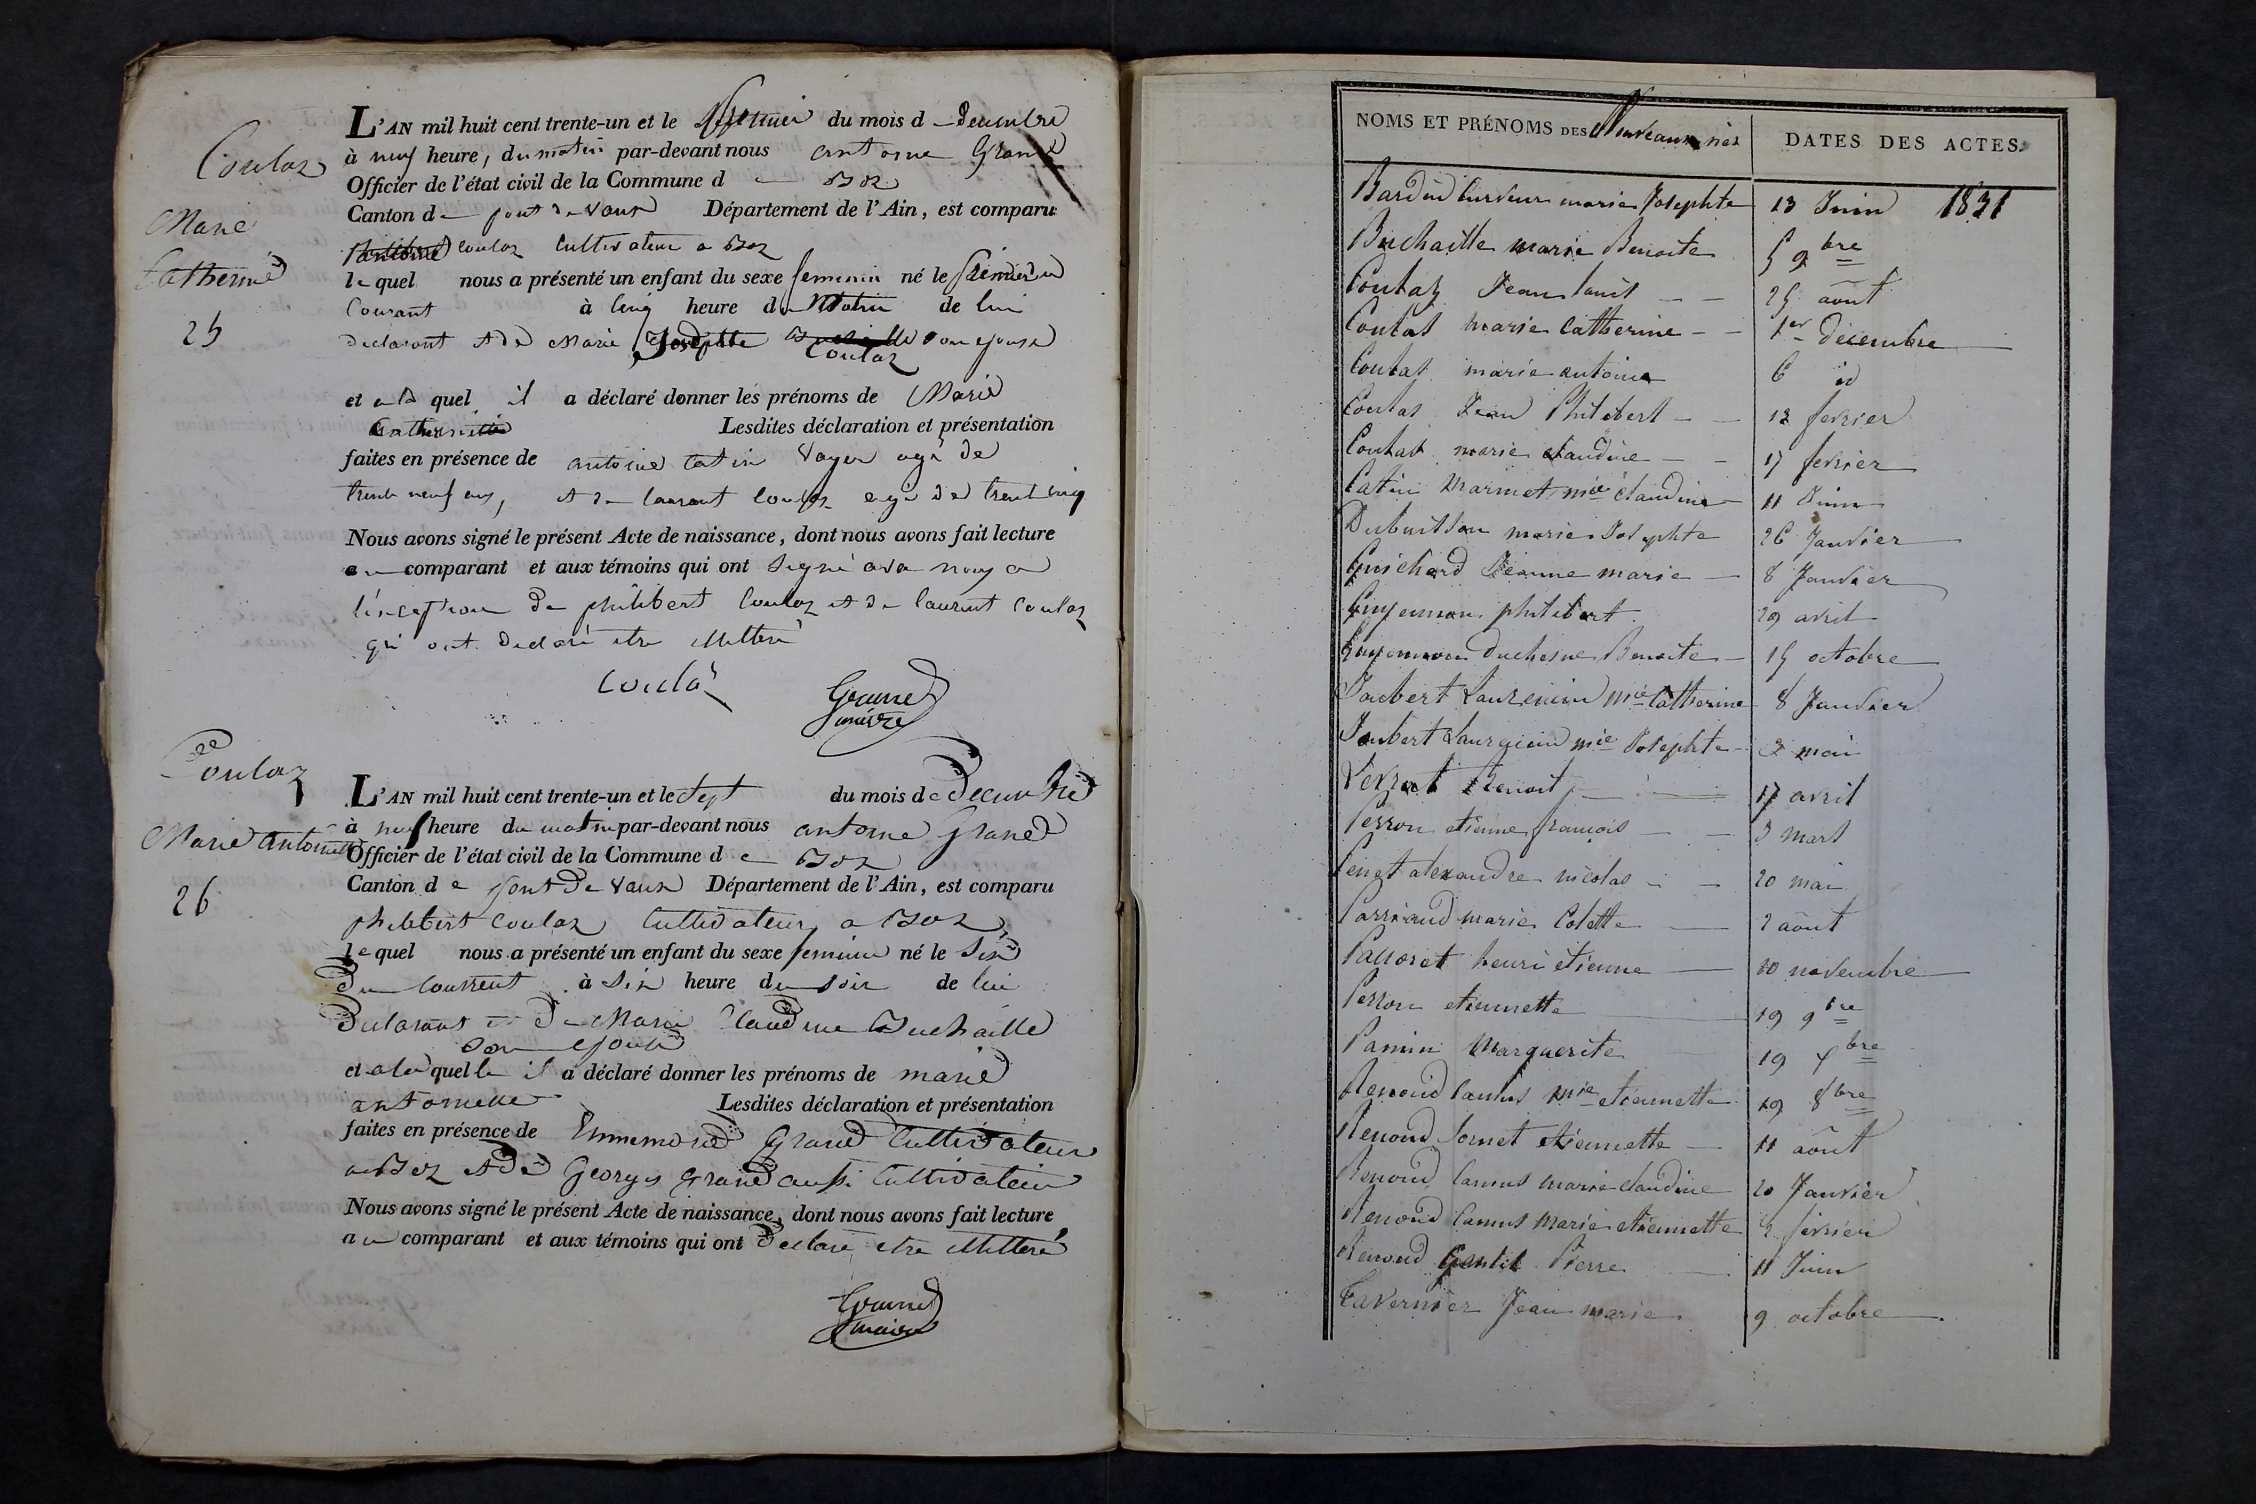 Coulaz
Marie
Catherine
25
L'AN mil huit cent trente-un et le premier du mois de decembre
à neuf heure, du matin par-devant nous antoine Grand
Officier de l'état civil de la Commune de Boz
Canton de pont de vaux Département de l'Ain, est comparu
coulaz Cultivateur a Boz
lequel nous a présenté un enfant du sexe feminin né le premier du
Courant à cinq heure du Matin de lui
declarant et de Marie Josephte Coulaz son epouse
et a la quel il a déclaré donner les prénoms de Marie
Catherine Lesdites déclaration et présentation
faites en présence de antoine catin Voyer agé de
trente neuf ans, et de laurent Coulaz agé de trent cinq
Nous avons signé le présent Acte de naissance, dont nous avons fait lecture
au comparant et aux témoins qui ont signé avec nous a
l'inception de philibert Coulaz et de laurent Coulaz
qui ont declaré etre illitere
Coulaz
Grand
maire
Coulaz
Marie antoinette
26
L'AN mil huit cent trente-un et le Sept du mois de Decembre
à neuf heure du matin par-devant nous antoine Grand
Officier de l'état civil de la Commune de Boz
Canton de pont De vaux Département de l'Ain, est comparu
philibert Coulaz Cultivateur a Boz
lequel nous a présenté un enfant du sexe feminin né le Six
Du Courrent à Six heure du soir de lui
Declarant et De Marie Claudine Buchaille
son epouse
et a la quelle il a déclaré donner les prénoms de marie
antoinette Lesdites déclaration et présentation
faites en présence de Ennemond Grand Cultivateur
a Boz et de Georges Grand aussi Cultivateur
Nous avons signé le présent Acte de naissance, dont nous avons fait lecture
au comparant et aux témoins qui ont Declaré etre illitere
Grand
maire
NOMS ET PRÉNOMS DES Nouveaux nés DATES DES ACTES.
Bardin marie Josephte 13 Juin 1831
Buchaille marie Benoite 5 9bre
Coulaz Jean louis 25 août
Coulas marie Catherine 1er décembre
Coulas marie antoine 6 id
Coulas Jean Philibert 12 fevrier
Coulas marie claudine 17 fevrier
Catin Marmet mie claudine 11 Juin
Dubuisson marie Josephte 26 Janvier
Guichard Jeanne marie 8 Janvier
Guyennon philibert 29 avril
Guyennon duchesne Benoite 15 octobre
Joubert Laurencin mie Catherine 8 Janvier
Joubert Laurencin mie Josephte 2 mai
Levrat Benoit 17 avril
Perron etienne françois 3 mars
Penet alexandre nicolas 20 mai
Parriaud marie Colette 2 août
Pauforat henri etienne 10 novembre
Perron etiennette 19 9bre
Pamin Marguerite 19 7bre
Renoud Camus mie etiennette 19 8bre
Renoud Jornet etiennette 11 août
Renoud Camus marie claudine 20 Janvier
Renoud Camus Marie etiennette 5 février
Renoud Gentil Pierre 11 Juin
Tavernier Jean marie 9 octobre